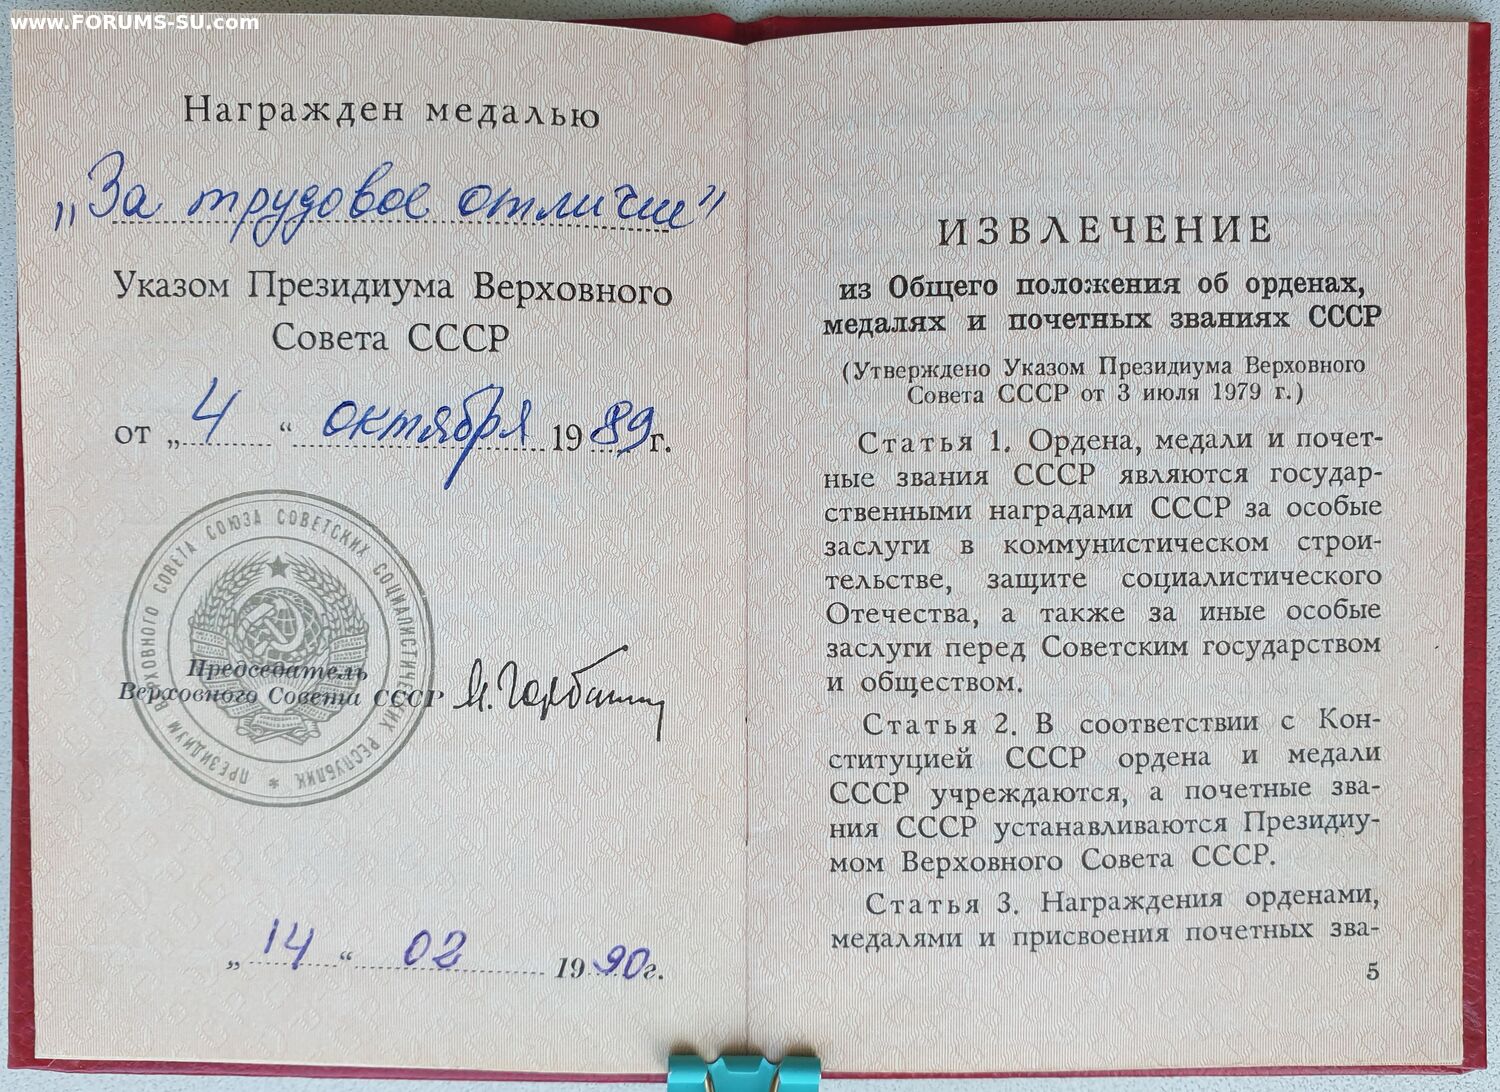 www.FORUMS-SU.com
Награжден медалью
„За трудовое отличие"
Указом Президиума Верховного
Совета СССР
от „4“ октября 1989 г.
ПРЕЗИДИУМ ВЕРХОВНОГО СОВЕТА СОЮЗА СОВЕТСКИХ СОЦИАЛИСТИЧЕСКИХ РЕСПУБЛИК *
Председатель
Верховного Совета СССР М. Горбачев
„14“ 02 1990 г.
ИЗВЛЕЧЕНИЕ
из Общего положения об орденах,
медалях и почетных званиях СССР
(Утверждено Указом Президиума Верховного
Совета СССР от 3 июля 1979 г.)
Статья 1. Ордена, медали и почет-
ные звания СССР являются государ-
ственными наградами СССР за особые
заслуги в коммунистическом строи-
тельстве, защите социалистического
Отечества, а также за иные особые
заслуги перед Советским государством
и обществом.
Статья 2. В соответствии с Кон-
ституцией СССР ордена и медали
СССР учреждаются, а почетные зва-
ния СССР устанавливаются Президиу-
мом Верховного Совета СССР.
Статья 3. Награждения орденами,
медалями и присвоения почетных зва-
5